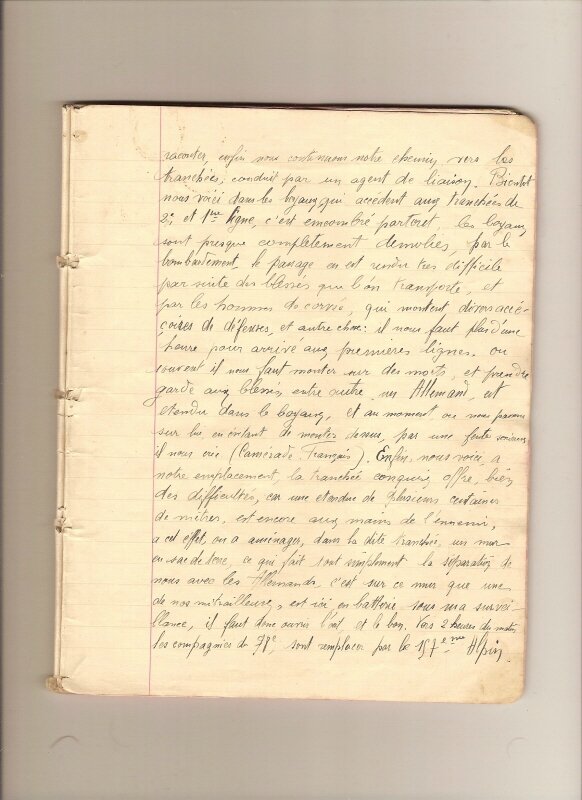 raconter, enfin nous continuons notre chemin vers les
tranchées, conduit par un agent de liaison. Bientot
nous voici dans les boyaux, qui accedent aux tranchées de
2e et 1ere ligne, c'est encombré partout les boyaux
sont presque completement demolies, par le
bombardement, le passage en est rendu très difficile
par suite des blessés que l'on transporte, et
par les hommes de corvée, qui montent divers accé-
çoires de défenses, et autre chose: il nous faut plus d'une
heure pour arrivé aux premieres lignes. ou
souvent il nous faut monter sur des morts, et prendre
garde aux blessés, entre autre un Allemand, est
etendu dans le boyaux, et au moment ou nous passons
sur lui, en évitant de montez dessus, par une feinte
il nous crie (Camérade Français). Enfin, nous voici, a
notre emplacement, la tranchée conquise, offre, bien
des difficultés, car une etendue de plusieurs centaines
de mètres, est encore aux mains de l'ennemi,
a cet effet, on a aménager, dans la dite tranchée, un mur
en sac de terre, ce qui fait tout simplement la séparation de
nous avec les Allemands, c'est sur ce mur que une
de nos mitrailleuses, est ici en batterie sous ma survei-
llance, il faut donc ouvrir l'œil et le bon. Vers 2 heures du matin
les compagnies du 97e, sont remplacer par le 157eme Alpin,